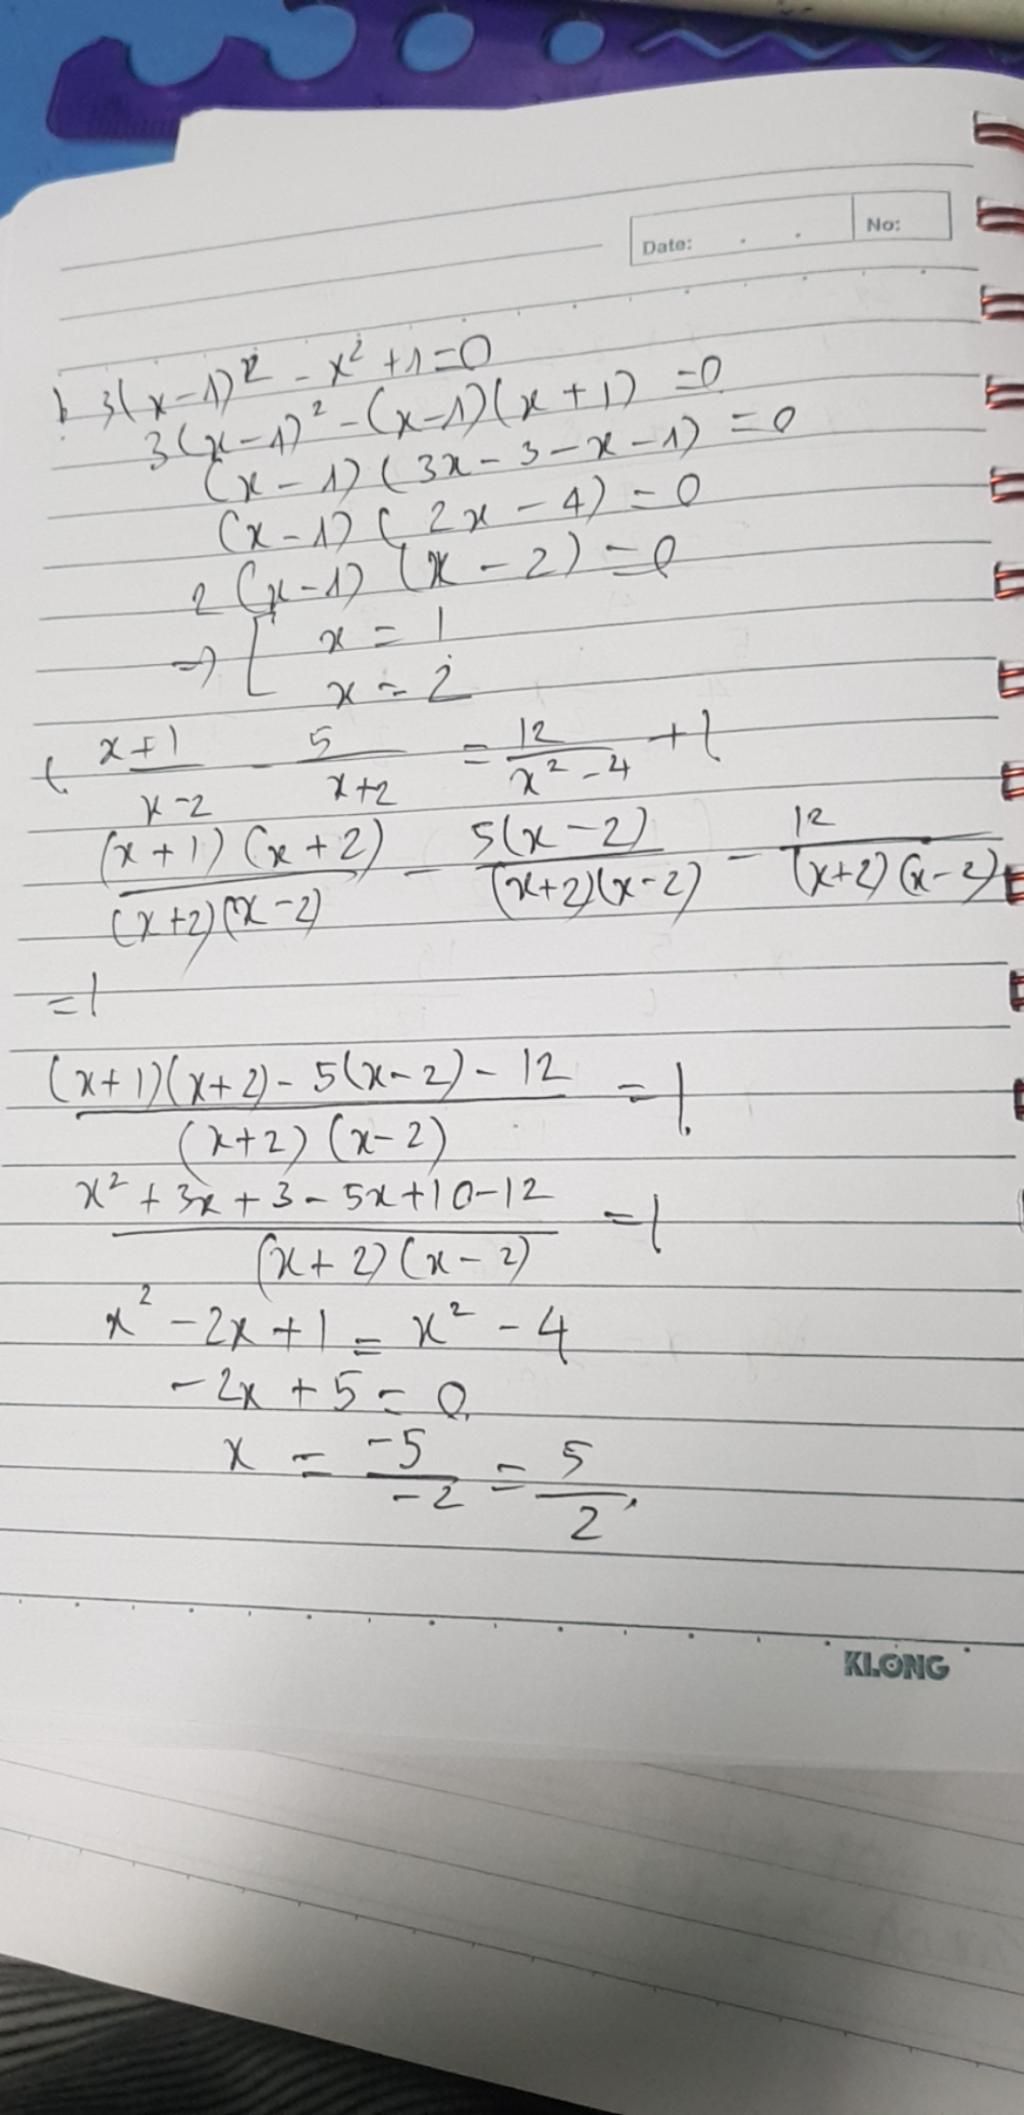 Date: . . No:
b. 3(x-1)² - x² + 1 = 0
3(x-1)² - (x-1)(x+1) = 0
(x-1)(3x-3-x-1) = 0
(x-1)(2x-4) = 0
2(x-1)(x-2) = 0
=> [ x = 1
x = 2
c. (x+1)/(x-2) - 5/(x+2) = 12/(x²-4) + 1
(x+1)(x+2)/(x+2)(x-2) - 5(x-2)/(x+2)(x-2) - 12/(x+2)(x-2)
= 1
(x+1)(x+2) - 5(x-2) - 12 / (x+2)(x-2) = 1
x² + 3x + 3 - 5x + 10 - 12 / (x+2)(x-2) = 1
x² - 2x + 1 = x² - 4
-2x + 5 = 0
x = -5/-2 = 5/2.
KLONG